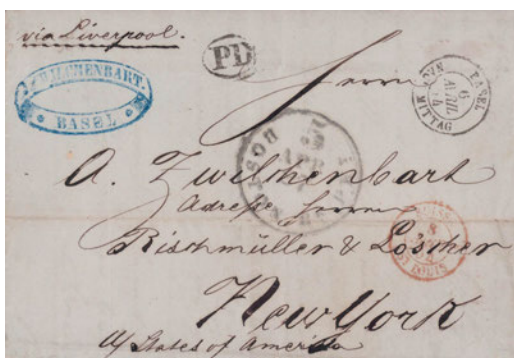 via Liverpool.
PD
ZWILCHENBART.
BASEL
Herrn
BASEL
6
AVRIL
NACHMITTAG
BOSTON
APR
A. Zwilchenbart
Adresse Herrn
Rischmüller & Löscher
SUISSE
8
ST LOUIS
New York
U/ States of America